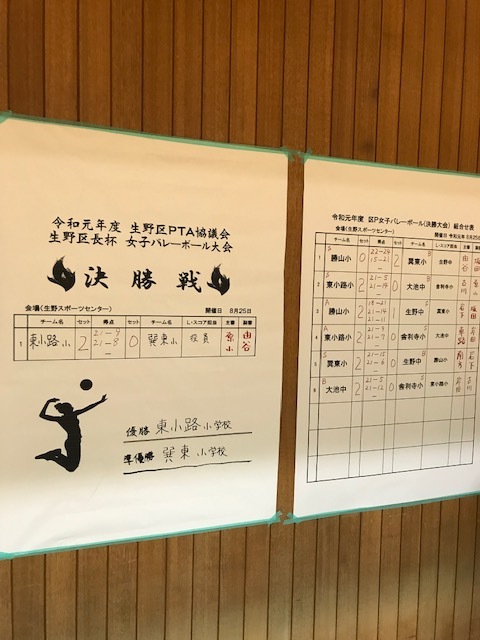 令和元年度 生野区PTA協議会
生野区長杯 女子バレーボール大会
決勝戦
会場(生野スポーツセンター) 開催日 8月25日
チーム名 セット 得点 セット チーム名 L・スコア担当 主審 副審
1 東小路小 2 21-9 21-8 - 0 巽東小 役員 由谷
優勝 東小路小学校
準優勝 巽東小学校
令和元年度 区P女子バレーボール(決勝大会) 組合せ表
開催日 令和元年 8月25
会場(生野スポーツセンター)
チーム名 セット 得点 セット チーム名 L・スコア担当 主審
1 S 勝山小 0 22-24 15-21 - 2 B 巽東小 生野中 由谷
2 S 東小路小 2 21-5 21-14 - 0 B 大池中 舎利寺小 古川
3 A 勝山小 2 18-21 21-14 21-11 1 S 生野中 巽東小
4 A 東小路小 2 21-9 21-8 - 0 S 舎利寺小 大池中
5 S 巽東小 2 21-15 21-6 - 0 B 生野中 勝山小
6 B 大池中 2 21-5 21-12 - 0 A 舎利寺小 東小路小